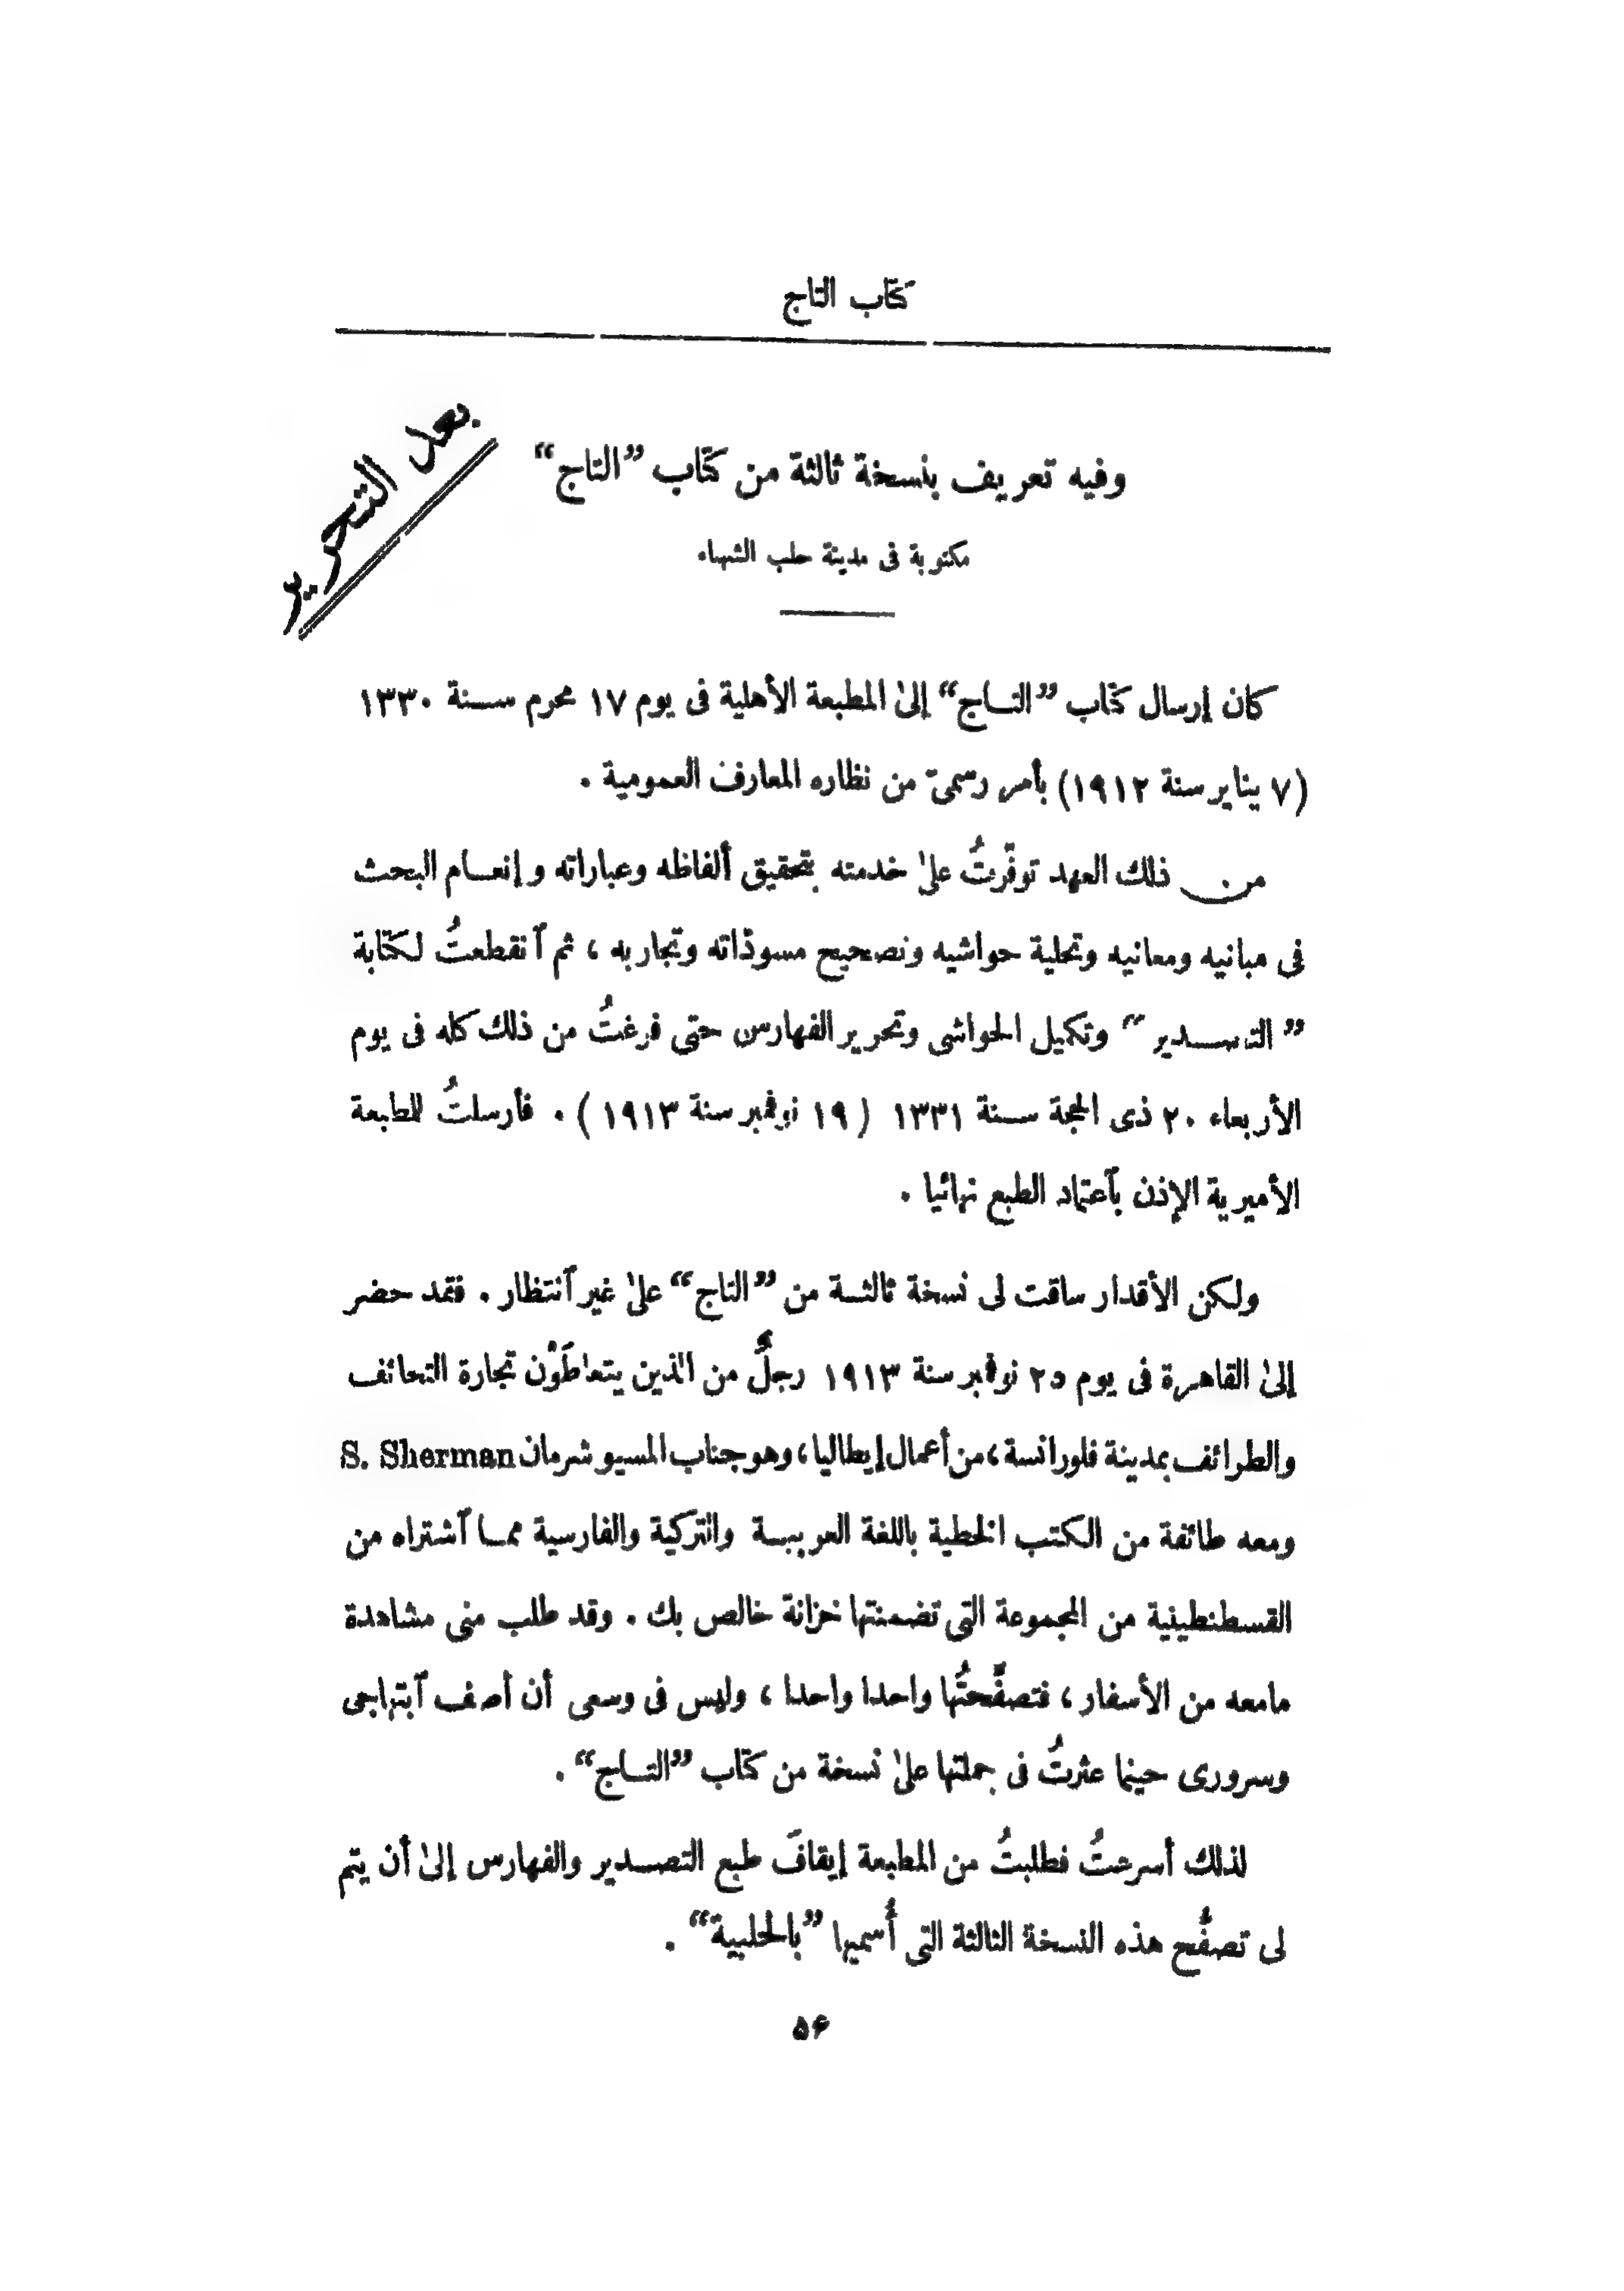 كتاب التاج
بعد التحرير
وفيه تعريف بنسخة ثالثة من كتاب ”التاج“
مكتوبة فى مدينة حلب الشهباء
كان إرسال كتاب ”التاج“ إلىٰ المطبعة الأهلية فى يوم ١٧ محرم سنة ١٣٣٠
(٧ يناير سنة ١٩١٢) بأمر رسمىّ من نظاره المعارف العمومية .
من ذلك العهد توفّرتُ علىٰ خدمته بتحقيق ألفاظه وعباراته وإنعام البحث
فى مبانيه ومعانيه وتحلية حواشيه وتصحيح مسودّاته وتجاربه ، ثم ٱنقطعتُ لكتابة
”التصدير“ وتكميل الحواشى وتحرير الفهارس حتى فرغتُ من ذلك كله فى يوم
الأربعاء ٢٠ ذى الحجة سنة ١٣٣١ ( ١٩ نوفمبر سنة ١٩١٣ ) . فأرسلتُ للمطبعة
الأميرية الإذن بٱعتماد الطبع نهائيا .
ولكن الأقدار ساقت لى نسخة ثالثة من ”التاج“ علىٰ غير ٱنتظار . فقد حضر
إلىٰ القاهرة فى يوم ٢٥ نوفمبر سنة ١٩١٣ رجلٌ من الذين يتعاطَوْن تجارة التحائف
والطرائف بمدينة فلورانسة ، من أعمال إيطاليا ، وهو جناب المسيو شرمان S. Sherman
ومعه طائفة من الكتب الخطية باللغة العربية والتركية والفارسية مما ٱشتراه من
القسطنطينية من المجموعة التى تضمنتها خزانة خالص بك . وقد طلب منى مشاهدة
مامعه من الأسفار ، فتصفَّحتُها واحدا واحدا ، وليس فى وسعى أن أصف ٱبتهاجى
وسرورى حينما عثرتُ فى جملتها علىٰ نسخة من كتاب ”التاج“ .
لذلك أسرعتُ فطلبتُ من المطبعة إيقافَ طبع التصدير والفهارس إلىٰ أن يتم
لى تصفُّح هذه النسخة الثالثة التى أُسميها ”بالحلبية“ .
٥۶